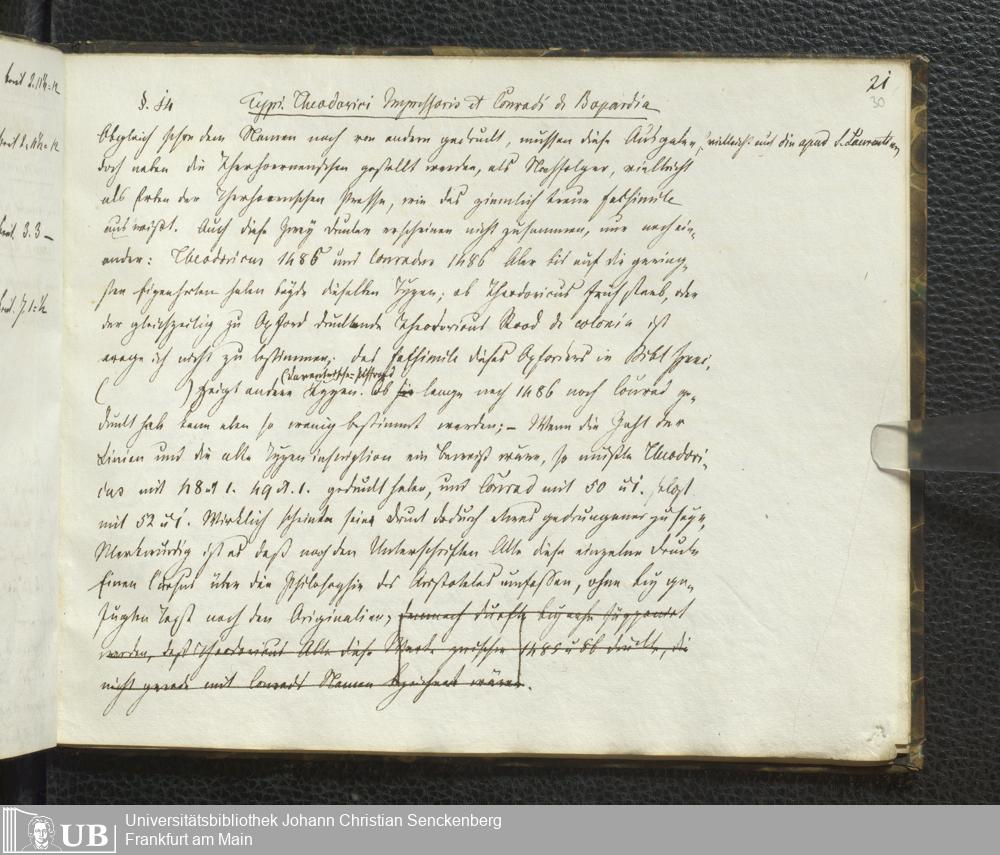 21
30
§. 14 Typi. Theodorici Impressoris et Conradi de Bopardia
Obgleich schon dem Namen nach von andern gedruckt, müssen diese Ausgaben, vielleicht mit die apud S. Laurentium
doch neben die Therhoernenschen gestellt werden, als Nachfolger, vielleicht
als Erben der Therhoernschen Presse, wie das ziemlich treue Facsimile
ausweißt. Auch diese zwey Drucker erscheinen nicht zusammen, nur nach ein-
ander: Theodoricus 1485 und Conradus 1486 Aber bis auf die gering-
sten Eigenheiten haben beyde dieselben Typen; ob Theodoricus früh starb, oder
der gleichzeitig zu Oxford druckende Theodoricus Rood de colonia ist
wage ich nicht zu bestimmen; das Facsimile dieses Oxforders in Bibl Spenc.
( ) zeigt andere Typen. Ob lange nach 1486 noch Conrad ge-
druckt hab kann eben so wenig bestimmt werden; – Wenn die Zahl der
Linien und die alte Typen ein Beweiß wäre, so müßte Theodori-
cus mit 48 et 1. 49 et. 1. gedruckt haben, und Conrad mit 50 u 1. selbst
mit 52 u 1. Wirklich scheinen seine Druck dadurch etwas gedrungener zu seyn,
Merkwürdig ist es daß nach den Unterschriften Alle diese einzelne Drucke
Einen Cursus über die Philosophie des Aristoteles umfassen, ohne bey ge-
fügten Text nach den Originalien; demnach dürfte beynahe
werden, daß Theodoricus Alle diese Werke zwischen 1485 u 86 druckte, die
nicht gerade mit Conrads Namen bezeichnet wären.
3. 3 –
UB
Universitätsbibliothek Johann Christian Senckenberg
Frankfurt am Main